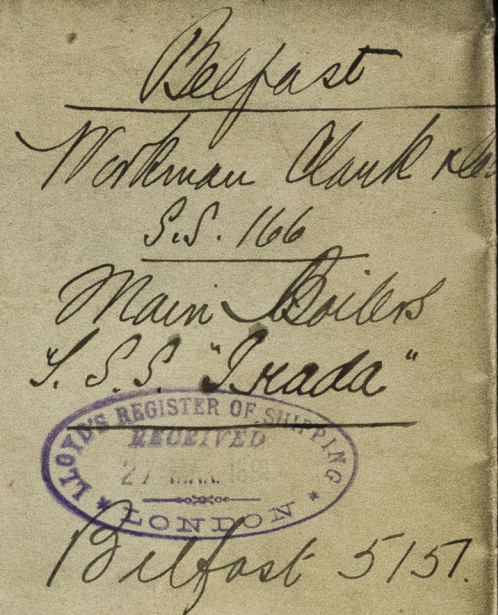 Belfast
Workman Clark & Co
S.S. 166
Main Boilers
"S.S.S. "Irada"
LLOYD'S REGISTER OF SHIPPING
RECEIVED
27
LONDON
Belfast 5151.